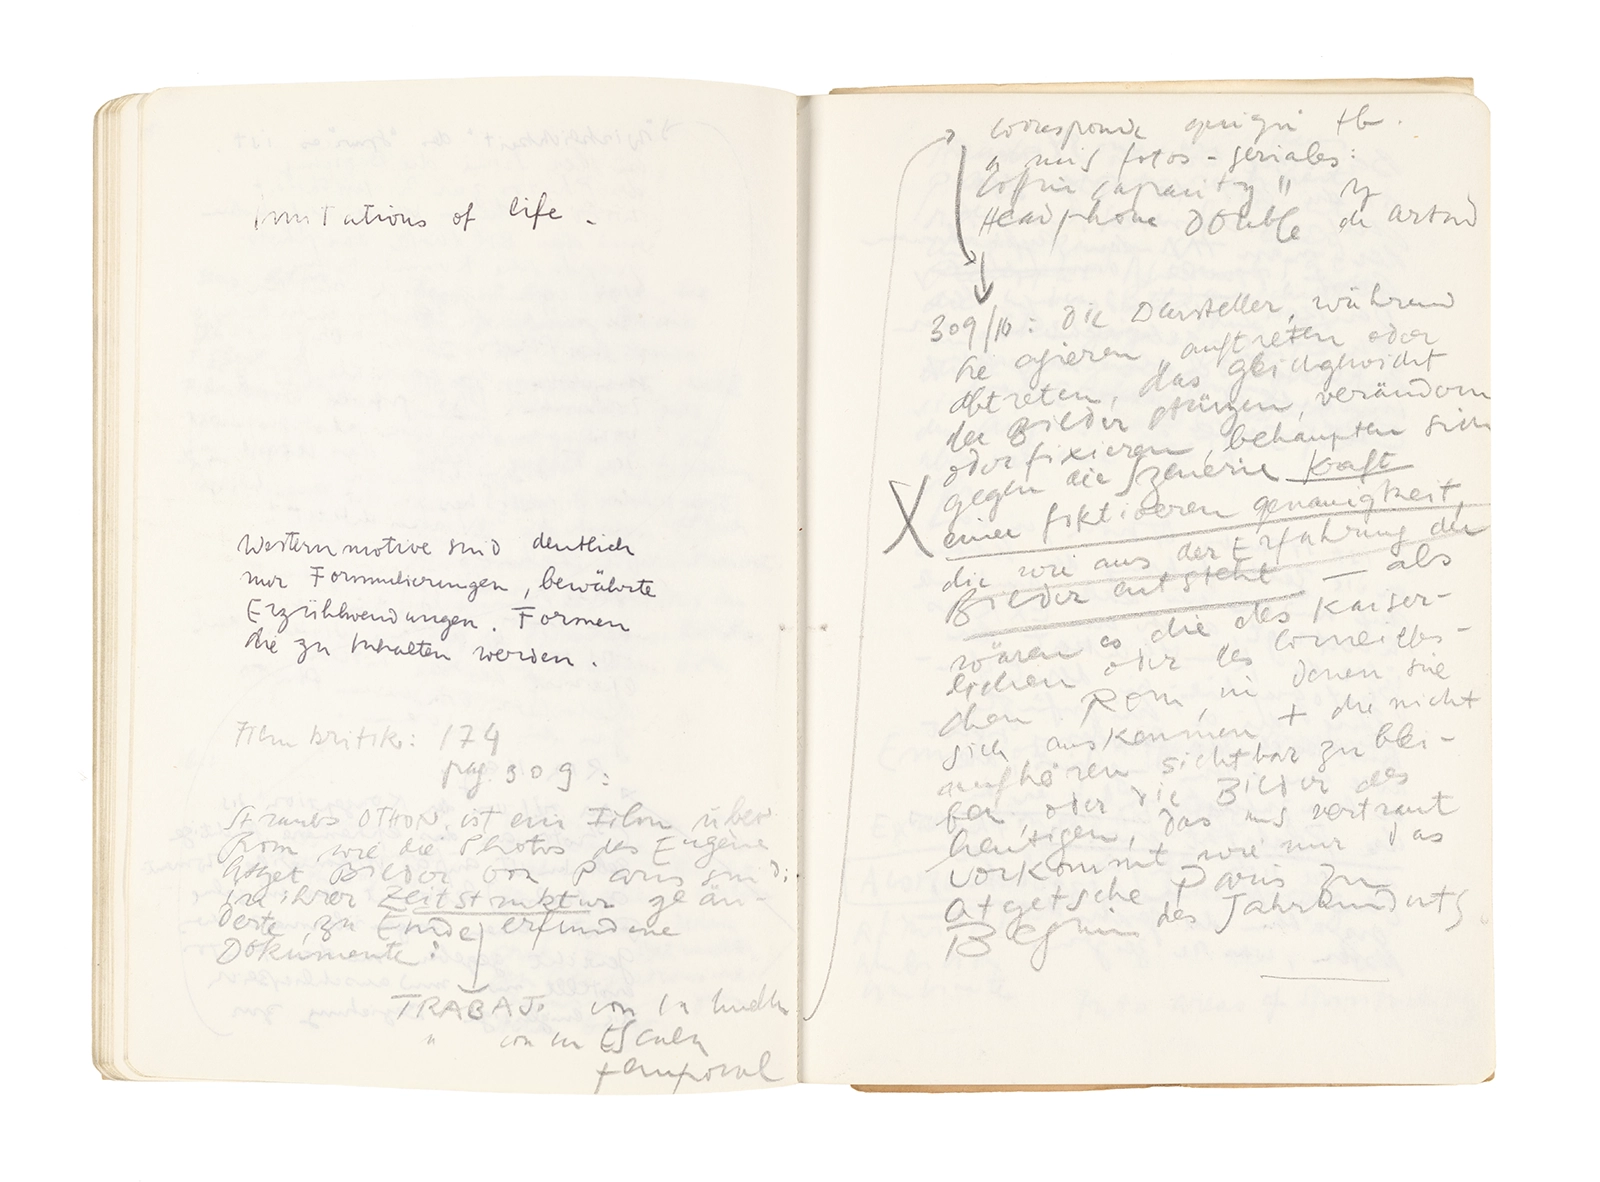 Imitations of life -
Westernmotive sind deutlich
nur Formulierungen, bewährte
Erzählwendungen. Formen
die zu Inhalten werden.
Filmkritik: 174
pag. 309:
Straubs OTHON, ist ein Film über
Rom wie die Photos des Eugène
Atget Bilder von Paris sind:
in ihrer Zeitstruktur geän-
derte, zu Ende erfundene
Dokumente!
TRABAJO con la huella
" con la Escala
temporal
corresponde aquí tb.
a mis fotos-seriales:
Coffin capacity" y
Headphone Double de Artaud
309/10: Die Darsteller, während
sie agieren, auftreten oder
abtreten, das Gleichgewicht
der Bilder stürzen, verändern
oder fixieren, behaupten sich
gegen die Szenerie kraft
einer fiktiveren genauigkeit,
die wie aus der Erfahrung der
Bilder entsteht — als
wären es die des Kaiser-
lichen oder des Corneilles-
chen Rom, in denen sie
sich auskennen + die nicht
aufhören sichtbar zu blei-
ben oder die Bilder des
heutigen, das uns vertraut
vorkommt wie nur das
atgetsche Paris zu
Beginn des Jahrhunderts.